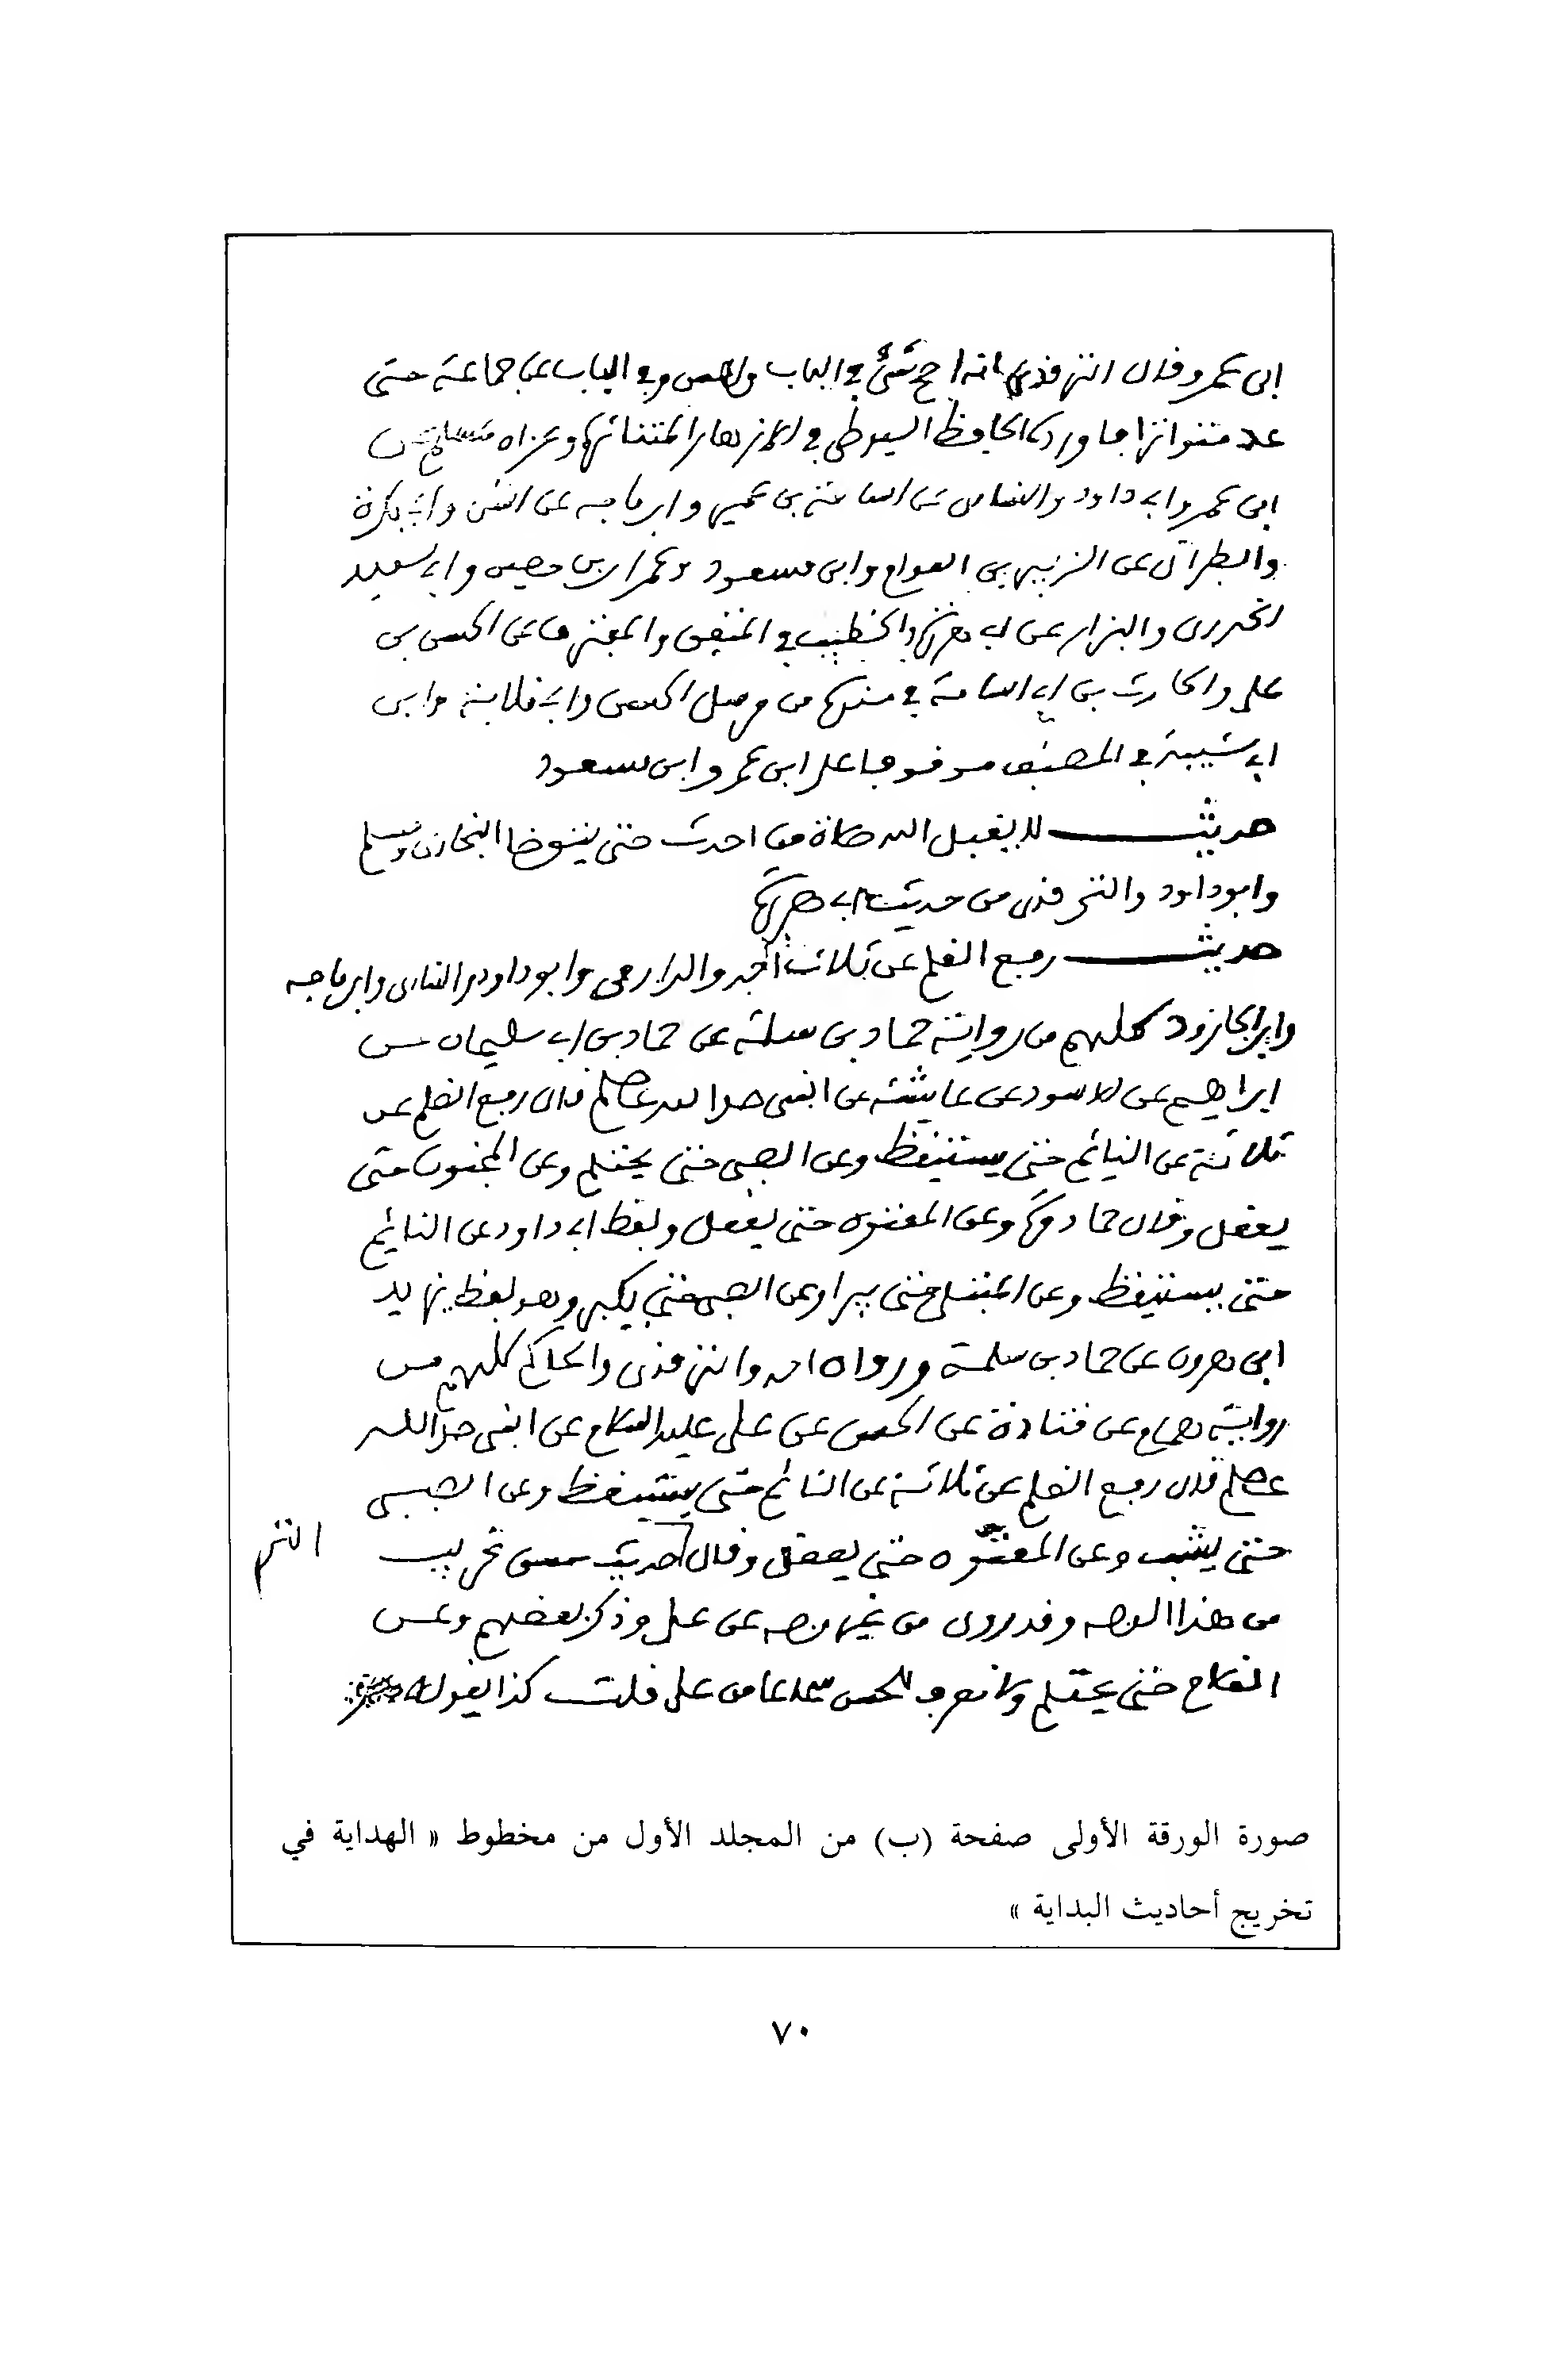 ابن عمر وقال الترمذي انه اصح شئ في الباب واحسن وفي الباب عن جماعة حتى
عد متواترا فاورده الحافظ السيوطي في الازهار المتناثرة وعزاه لمسلم عن
ابن عمر وابي داود والنسائي عن اسامة بن عمير وابن ماجه عن انس وابي بكرة
والطبراني عن الزبير بن العوام وابن مسعود وعمران بن حصين وابي سعيد
الخدري والبزار عن ابي هريرة والخطيب في المتفق والمفترق عن الحسن بن
علي والحارث بن ابي اسامة في مسنده من مرسل الحسن وابي قلابة وابن
ابي شيبة في المصنف موقوفا على ابن عمر وابن مسعود
حديث لا يقبل الله صلاة من احدث حتى يتوضا البخاري ومسلم
وابو داود والترمذي من حديث ابي هريرة
حديث رفع القلم عن ثلاث احمد والدارمي وابو داود والنسائي وابن ماجه
وابن الجارود كلهم من رواية حماد بن سلمة عن حماد بن ابي سليمان عن
ابراهيم عن الاسود عن عايشة عن النبي صلى الله عليه وسلم قال رفع القلم عن
ثلاثة عن النائم حتى يستيقظ وعن الصبي حتى يحتلم وعن المجنون حتى
يعقل وقال حماد مرة وعن المعتوه حتى يعقل ولفظ ابي داود عن النائم
حتى يستيقظ وعن المبتلى حتى يبرا وعن الصبي حتى يكبر وهو لفظ يزيد
ابن هرون عن حماد بن سلمة ورواه احمد والترمذي والحاكم كلهم من
رواية همام عن قتادة عن الحسن عن علي عليه السلام عن النبي صلى الله
عليه وسلم قال رفع القلم عن ثلاثة عن النائم حتى يستيقظ وعن الصبي
حتى يشب وعن المعتوه حتى يعقل وقال حديث حسن غريب
التر
من هذا الوجه وقد روي من غير وجه عن علي وذكر بعضهم وعن
الغلام حتى يحتلم ولا نعرف للحسن سماعا من علي قلت كذا يقول
صورة الورقة الأولى صفحة (ب) من المجلد الأول من مخطوط « الهداية في
تخريج أحاديث البداية »
٧٠